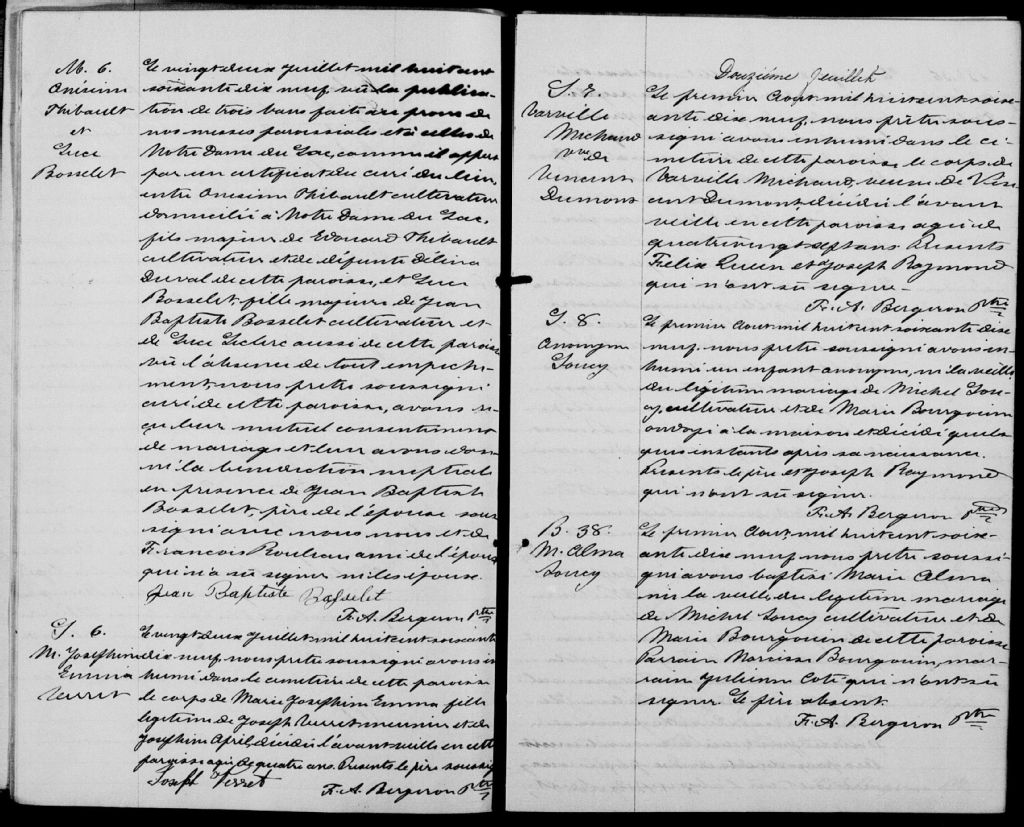 M. 6.
Onésime
Thibault
et
Luce
Bosselet
Le vingt deux Juillet mil huit cent
soixante dix neuf, vu la publica-
tion de trois bans faite au prone de
nos messes paroissiales et à celles de
Notre Dame du Lac, comme il appert
par un certificat du curé du lieu,
entre Onesime Thibault cultivateur
domicilié à Notre Dame du Lac,
fils majeur de Edouard Thibault
cultivateur et de défunte Délina
Duval de cette paroisse, et Luce
Bosselet, fille majeure de Jean
Baptiste Bosselet cultivateur et
de Luce Leclerc aussi de cette paroisse
vu l'absence de tout empêche-
ment, nous prêtre soussigné
curé de cette paroisse, avons re-
çu leur mutuel consentement
de mariage et leur avons don-
né la bénédiction nuptiale
en présence de Jean Baptiste
Bosselet, père de l'épouse sous-
signé avec nous et de
François Rouleau ami de l'époux
qui n'a su signer ni les époux.
Jean Baptiste Bosselet
F. A. Bergeron Ptre
S. 6.
M. Josephine
Emma
Verret
Le vingt deux Juillet mil huit cent soixante
dix neuf, nous prêtre soussigné avons in
humé dans le cimetière de cette paroisse
le corps de Marie Josephine Emma fille
légitime de Joseph Verret meunier et de
Josephine April, décédée l'avant veille en cette
paroisse agée de quatre ans. Présents le père soussigné
Joseph Verret
F. A. Bergeron Ptre
Douzième Juillet
S. 7
Varville
Michaud
Vve de
Vincent
Dumont
Le premier Aout mil huit cent soix-
ante dix neuf, nous prêtre sous-
signé avons inhumé dans le ci-
metière de cette paroisse le corps de
Varville Michaud, veuve de Vin-
cent Dumont, décédée l'avant
veille en cette paroisse agée de
quatrevingt sept ans. Présents
Félix et Joseph Raymond
qui n'ont su signer.
F. A. Bergeron Ptre
S. 8.
Anonyme
Soucy
Le premier Aout mil huit cent soixante dix
neuf, nous prêtre soussigné avons in-
humé un enfant anonyme, né la veille
du légitime mariage de Michel Sou-
cy, cultivateur et de Marie Bourgouin
ondoyé à la maison et décédé quel-
ques instants après sa naissance.
Présents le père et Joseph Raymond
qui n'ont su signer.
F. A. Bergeron Ptre
B. 38.
M. Alma
Soucy
Le premier Aout mil huit cent soix-
ante dix neuf nous prêtre soussi-
gné avons baptisé Marie Alma
née la veille du légitime mariage
de Michel Soucy cultivateur et de
Marie Bourgouin de cette paroisse
Parrain Narcisse Bourgouin, mar-
raine Julienne Coté qui n'ont su
signer. Le père absent.
F. A. Bergeron Ptre